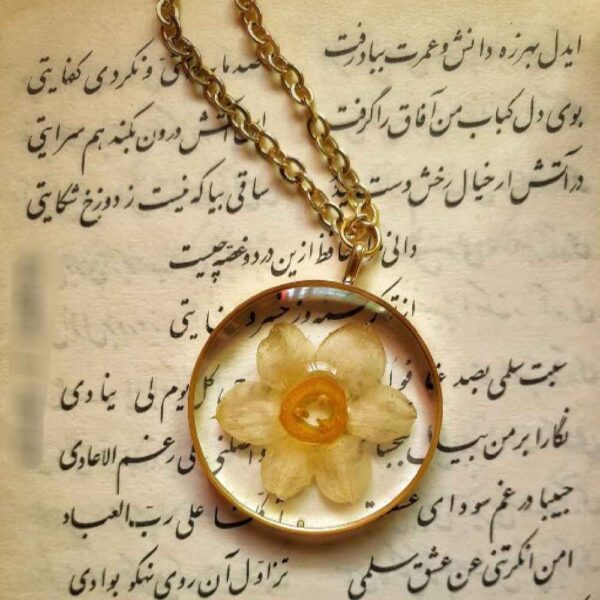 ایدل بهرزه دانش و عمرت بباد رفت صد ما و نکردی کفایتی
بوی دل کباب من آفاق را گرفت آتش درون بکند هم سرایتی
در آتش ار خیال رخش دست ساقی بیا که نیست ز دوزخ شکایتی
دانی حافظ ازین درد و غصه چیست
از تو خسرو عنایتی
سبت سلمی بصد کل یوم لی ینادی
نگارا بر من بیدل ببخشای و واصلنی علی رغم الاعادی
حبیبا در غم سودای علی رب العباد
امن انکرتنی عن عشق سلمی تزاول آن روی نهکو بوادی